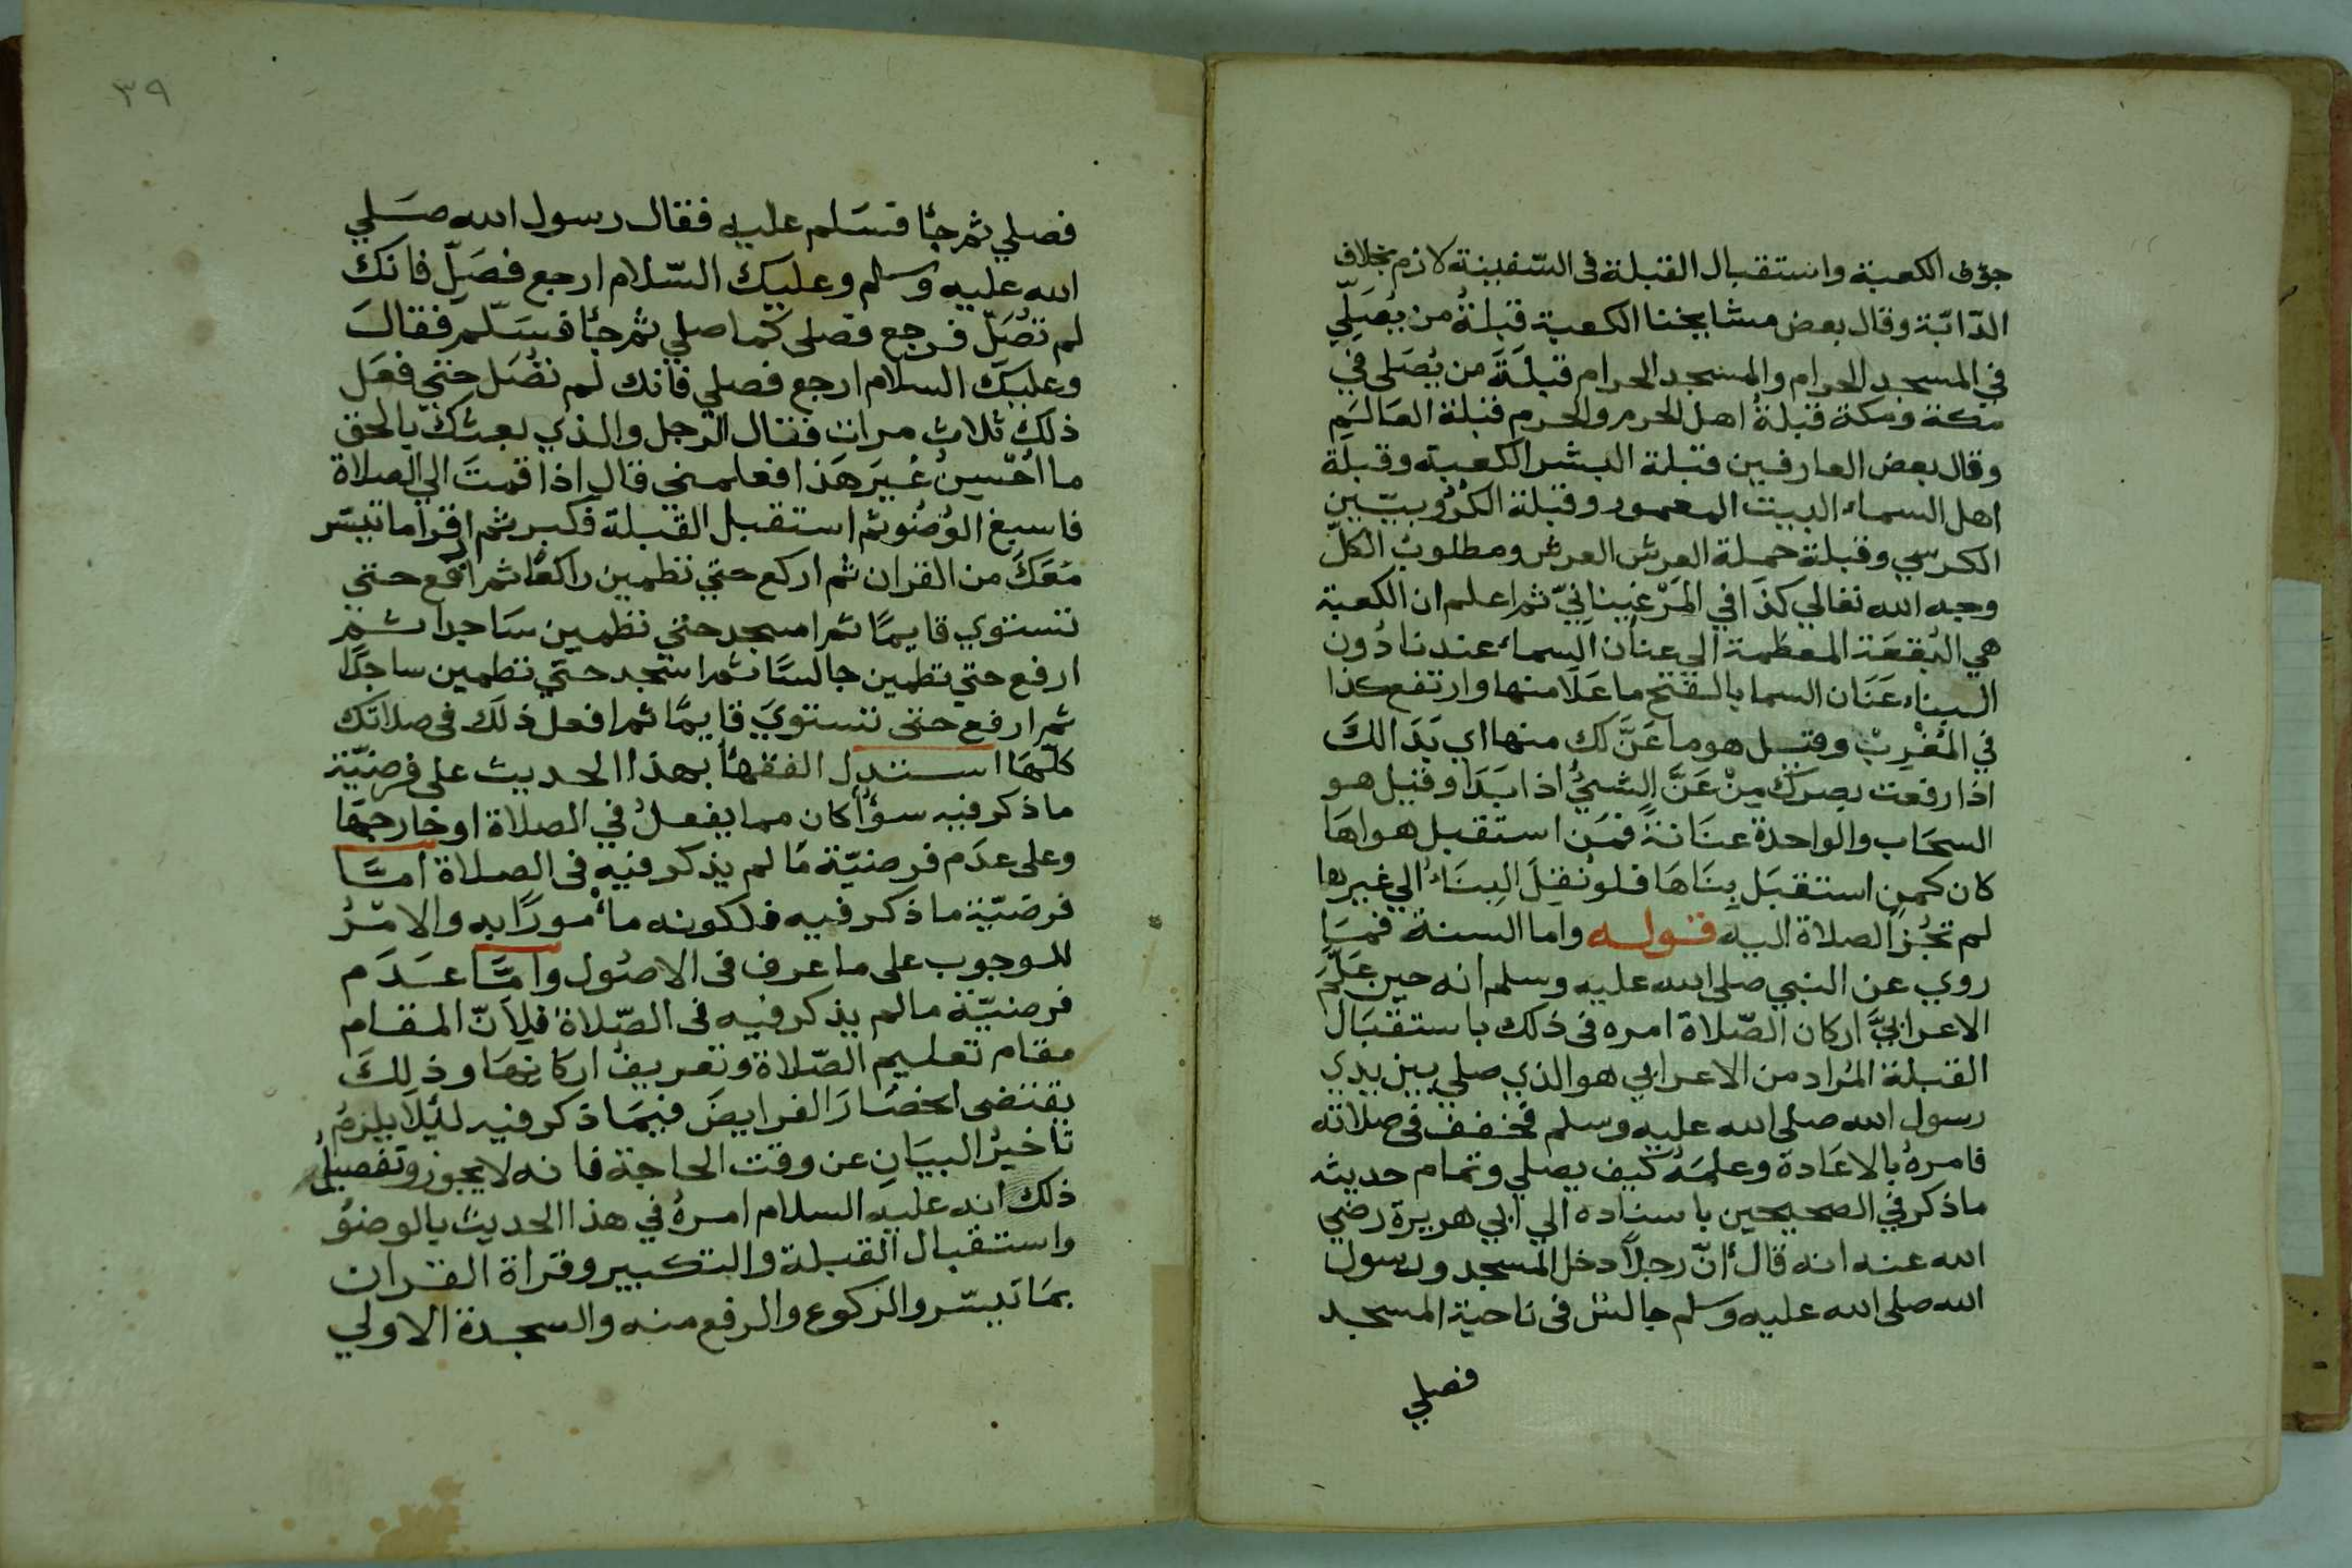 جوف الكعبة واستقبال القبلة فى السّفينة لازم بخلاف
الدّابّة وقال بعض مشايخنا الكعبة قبلةُ من يُصَلّي
في المسجد الحرام والمسجد الحرام قبلَةَ من يُصَلى في
مكة ومكة قبلةُ اهل الحرم والحرم قبلة العَالَم
وقال بعض العارفين قبلة البشر الكعبة وقبلة
اهل السماء البيت المعمور وقبلة الكرُوبيّين
الكرسي وقبلة حملة العرش العرش ومطلوبُ الكلّ
وجه الله تعالي كذَا في المَرْغيناَنيّ ثم اعلم ان الكعبة
هي البُقعَة المعظمة الي عنان السماء عندنا دُون
البناء عَنَان السما بالفتح ما عَلَا منها وارتفع كذا
في المُغْرِبْ وقيل هو ما عَنَّ لك منها اي بَدَا لكَ
اذا رفعت بصرك مِنْ عَنَّ الشيُّ اذا بَدَا وقيل هو
السحَاب والواحدة عنَانةً فمَن استقبل هواهَا
كان كمن استقبَل بِنَاهَا فلو نُقِلَ البِنَاءُ الي غيرها
لم تجُز الصلاة اليه قوله واما السنة فمَا
روي عن النبي صلى الله عليه وسلم انه حين عَلَّمَ
الاعرابيَّ اركان الصّلاة امره فى ذلك باستقبَال
القبلة المُراد من الاعرابي هو الذي صلي بين يدي
رسول الله صلى الله عليه وسلم فخفف فى صلاته
فامرهُ بالاعَادة وعلمَهُ كيف يصلي وتمام حديثه
ما ذكر في الصحيحين باسناده الي ابي هريرة رضي
الله عنه انه قال أنّ رجلاً دخل المسجد ورسول
الله صلى الله عليه وسلم جالسٌ فى ناحية المسجد
فصلي
٣٩
فصلي ثم جأ فسَلم عليه فقال رسول الله صَلي
الله عليه وسلم وعليك السّلام ارجع فصَلّ فانك
لم تُصَلّ فرجع فصلى كما صلي ثم جأ فسَلّم فقالَ
وعليكَ السلام ارجع فصلي فانك لم تُصَل حتي فعَل
ذلك ثلاث مرات فقال الرجل والذي بعثك بالحق
ما اُحْسِنُ غيرَ هَذا فعلمني قال اذا قمتَ الي الصلاة
فاسبغ الوُضُو ثم استقبل القبلة فكبر ثم اقرا ما تيسّر
مَعَكَ من القران ثم اركع حتي تطمين راكعًا ثم ارفع حتي
تستوي قايمًا ثم اسجد حتي تطمين سَاجدا ثم
ارفع حتي تطمين جالسًا ثم اسجد حتي تطمين ساجدًا
ثم ارفع حتى تستويَ قايمًا ثم افعل ذلك فى صلاتك
كلّهَا استدل الفقهأ بهذا الحديث على فرضيّة
ما ذكر فيه سوُأ كان مما يفعلُ في الصلاة او خارجَها
وعلى عدَم فرضيّة مَا لم يذكر فيه فى الصلاة امّا
فرضيّة ما ذكر فيه فلكونه مأمورًا به والامْرُ
للوجوب على ما عرف فى الاصُول وامَّا عَدَم
فرضيّة ما لم يذكر فيه فى الصّلاة فلِانّ المقام
مقام تعليم الصّلاة وتعريف اركانهَا وذلكَ
يقتضى انحصَارَ الفرايضَ فيمَا ذكر فيه لئِلّا يلزمُ
تاخيرُ البيَانِ عن وقت الحاجة فانه لا يجوز وتفصيلُ
ذلك انه عليه السلام امرهُ في هذا الحديث بالوضوُ
واستقبال القبلة والتكبير وقراة القران
بمَا تيسّر والركوع والرفع منه والسجدة الاولي